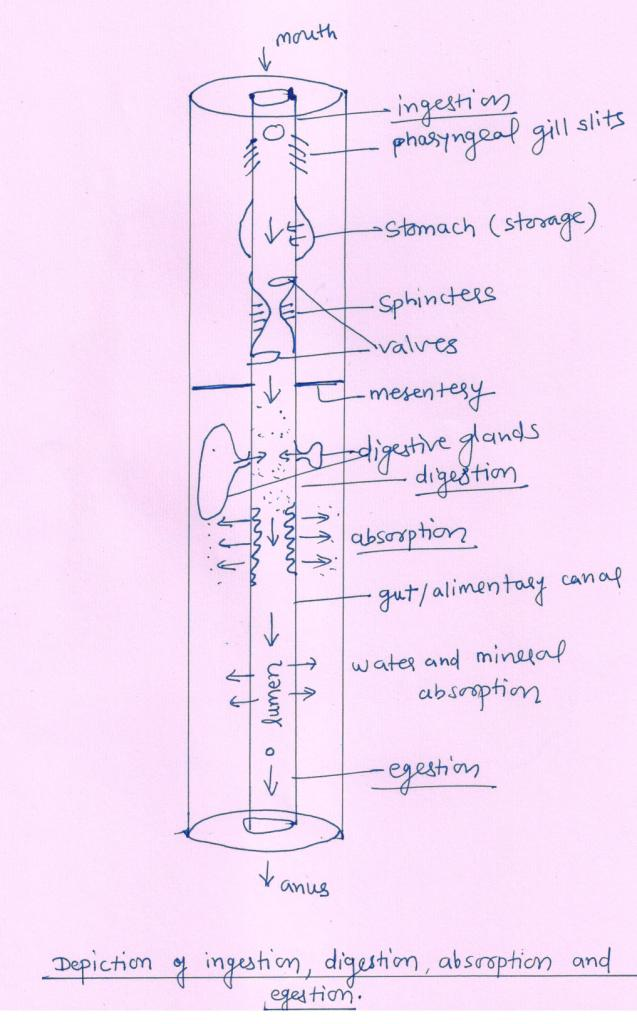 mouth
ingestion
pharyngeal gill slits
Stomach (storage)
Sphincters
valves
mesentery
digestive glands
digestion
absorption
gut/alimentary canal
water and mineral
absorption
lumen
egestion
anus
Depiction of ingestion, digestion, absorption and
egestion.